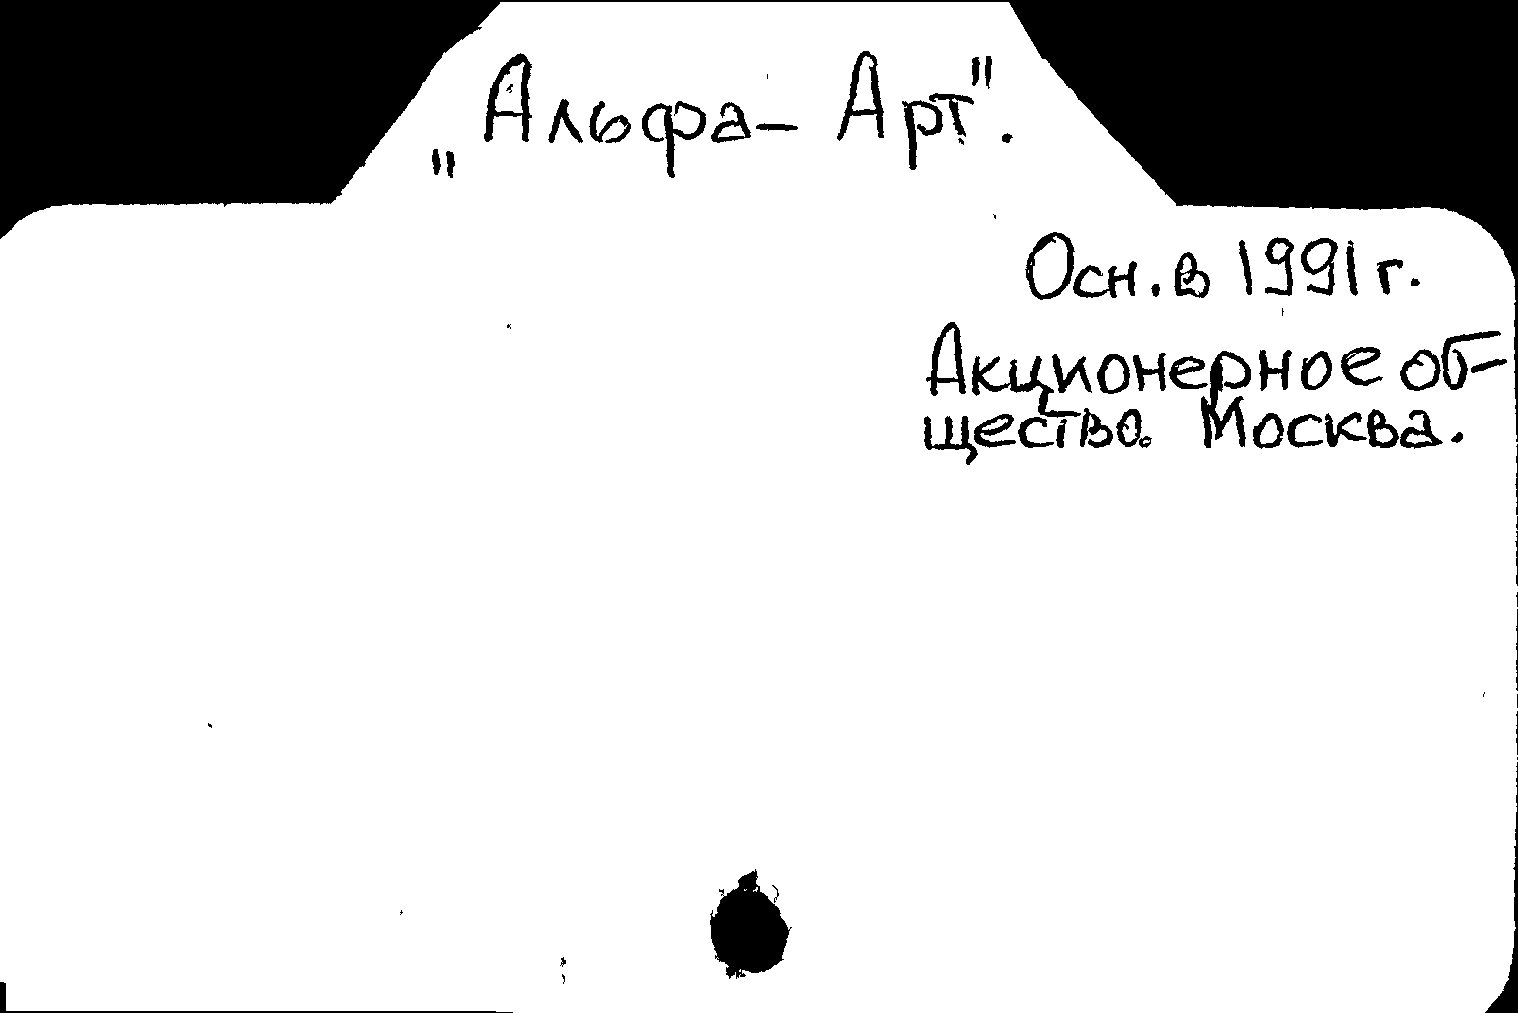 „Альфа-Арт".
Осн. в 1991 г.
Акционерное об-
щество. Москва.